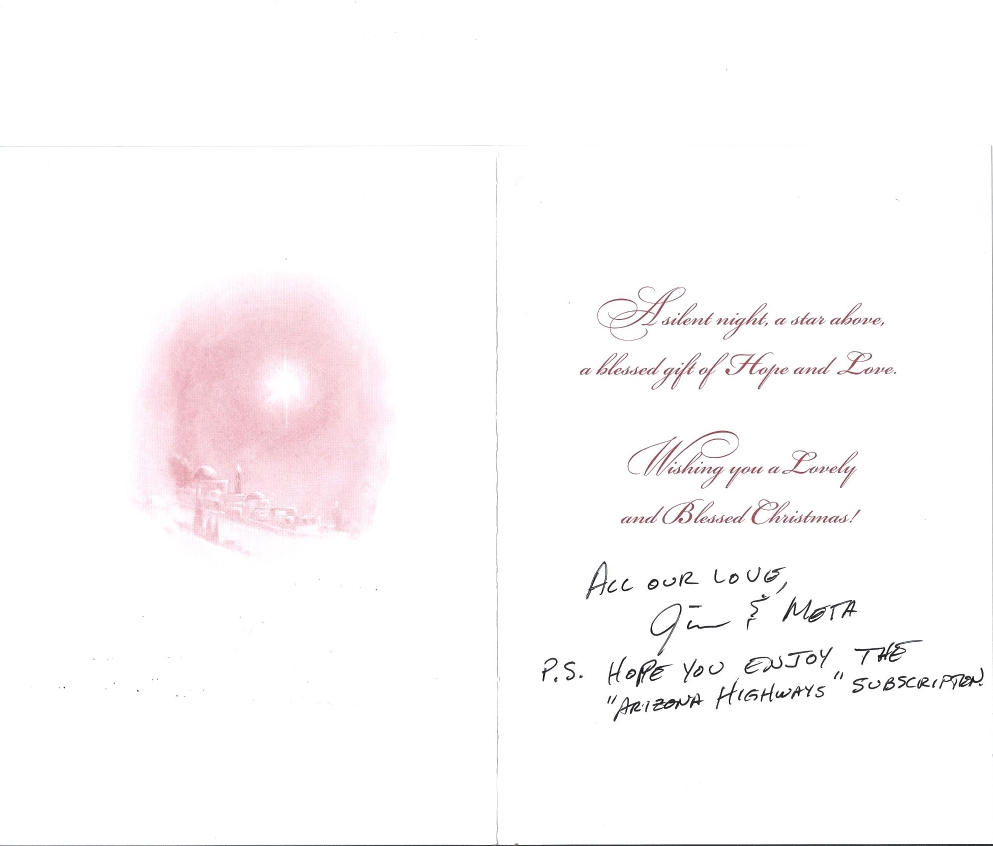 A silent night, a star above,
a blessed gift of Hope and Love.
Wishing you a Lovely
and Blessed Christmas!
ALL OUR LOVE,
Jim & META
P.S. HOPE YOU ENJOY THE
"ARIZONA HIGHWAYS" SUBSCRIPTION.